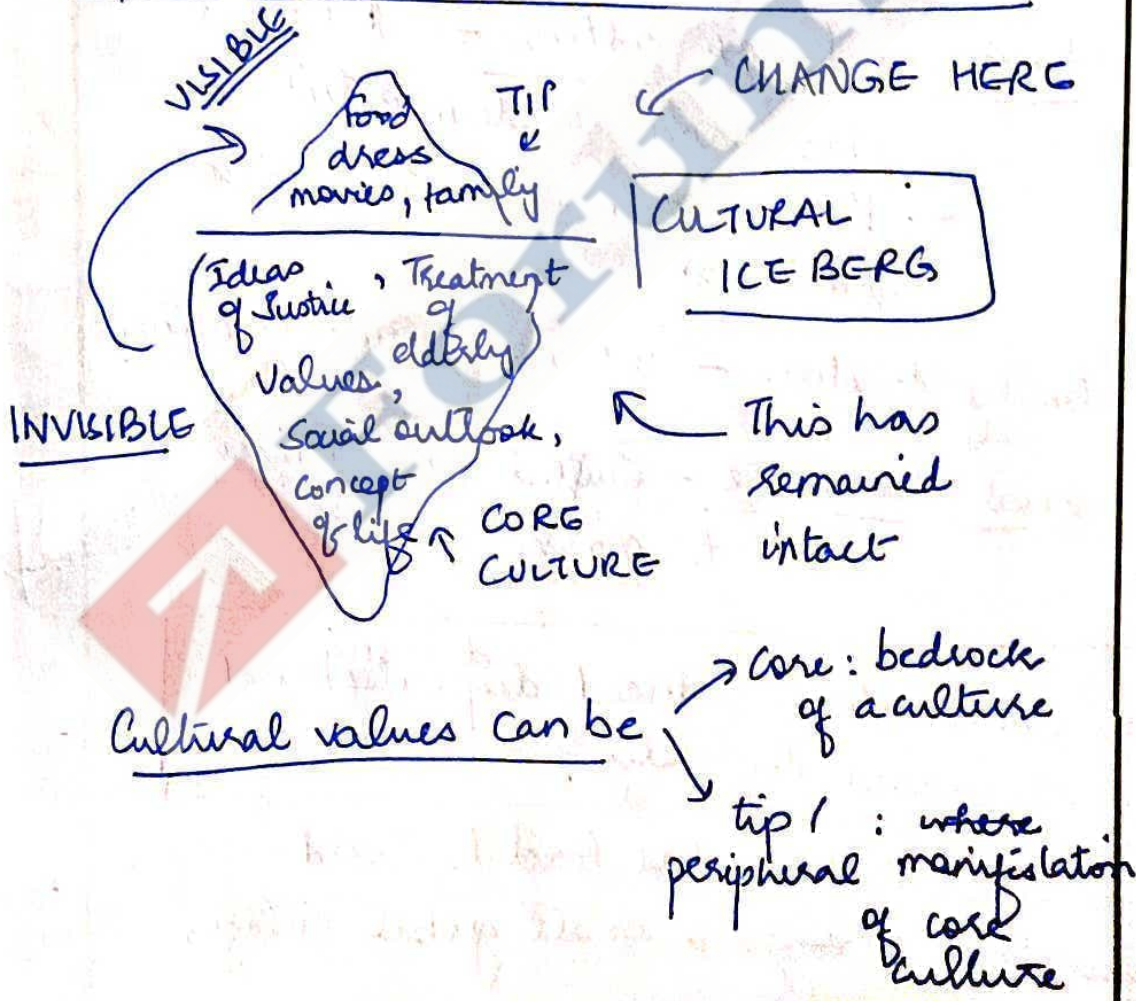 VISIBLE
food
dress
movies, family
TIP
CHANGE HERE
CULTURAL
ICE BERG
Ideas of Justice, Treatment of elderly
Values,
Social outlook,
concept
of life
INVISIBLE
CORE
CULTURE
This has
remained
intact
Cultural values can be
core: bedrock
of a culture
tip / : where
peripheral manifistation
of core
culture
Forum